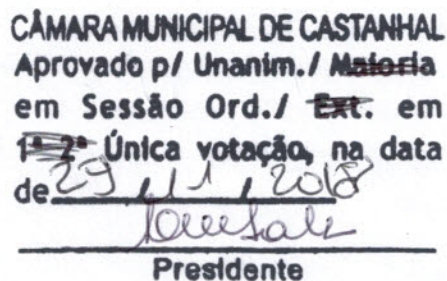 CÂMARA MUNICIPAL DE CASTANHAL
Aprovado p/ Unanim./ Maioria
em Sessão Ord./ Ext. em
1ª 2ª Única votação, na data
de 29 / 11 / 2018
Presidente